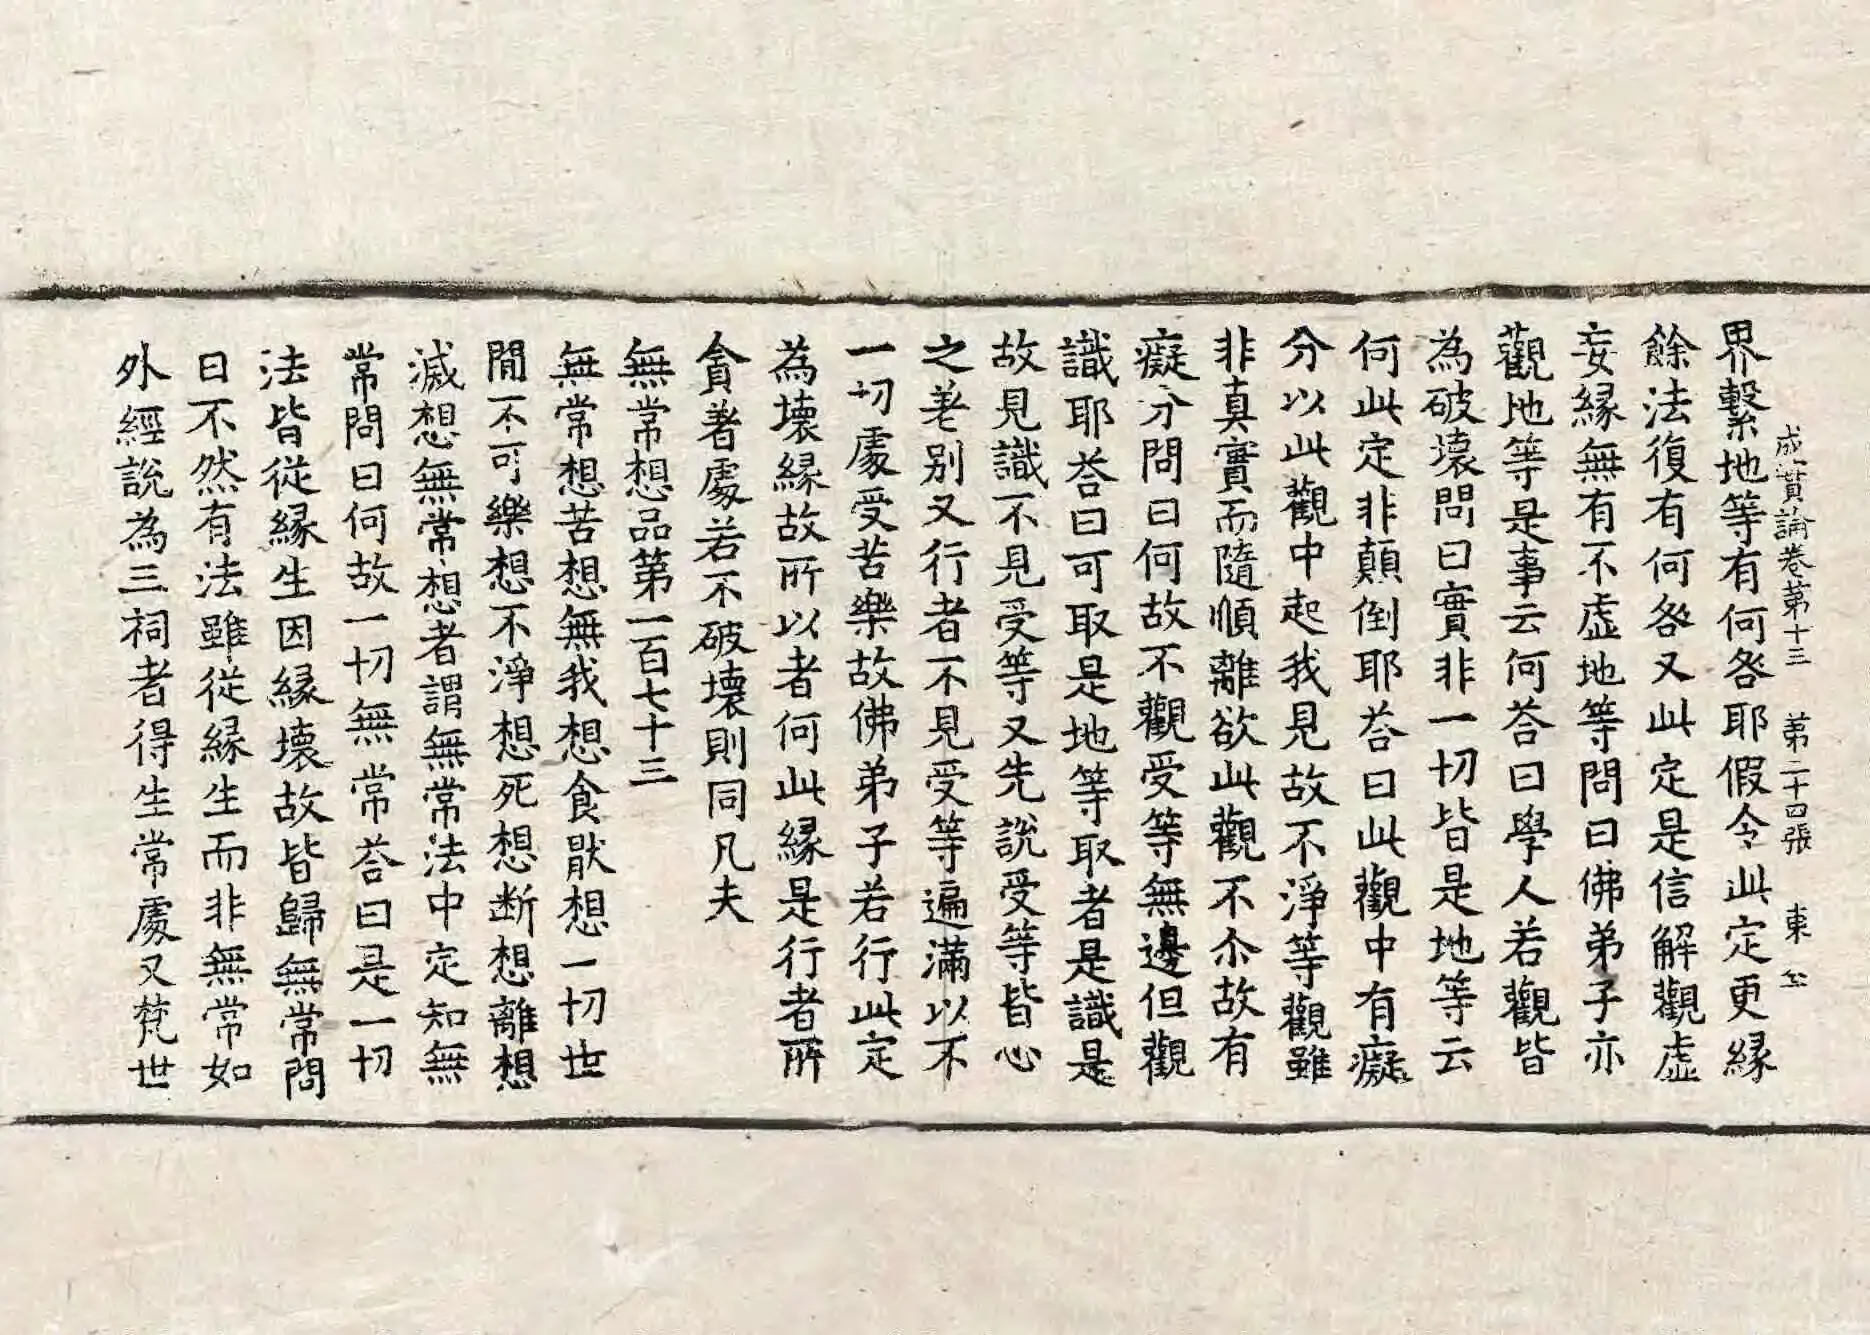 成實論卷第十三　第二十四張　東
界繫地等有何咎耶假令此定更緣
餘法復有何咎又此定是信解觀虛
妄緣無有不虛地等問曰佛弟子亦
觀地等是事云何荅曰學人若觀皆
為破壞問曰實非一切皆是地等云
何此定非顛倒耶荅曰此觀中有癡
分以此觀中起我見故不淨等觀雖
非真實而隨順離欲此觀不尒故有
癡分問曰何故不觀受等無邊但觀
識耶荅曰可取是地等取者是識是
故見識不見受等又先說受等皆心
之差別又行者不見受等遍滿以不
一切處受苦樂故佛弟子若行此定
為壞緣故所以者何此緣是行者所
貪著處若不破壞則同凡夫
無常想品第一百七十三
無常想苦想無我想食猒想一切世
閒不可樂想不淨想死想断想離想
滅想無常想者謂無常法中定知無
常問曰何故一切無常荅曰是一切
法皆從緣生因緣壞故皆歸無常問
曰不然有法雖從緣生而非無常如
外經說為三祠者得生常處又梵世